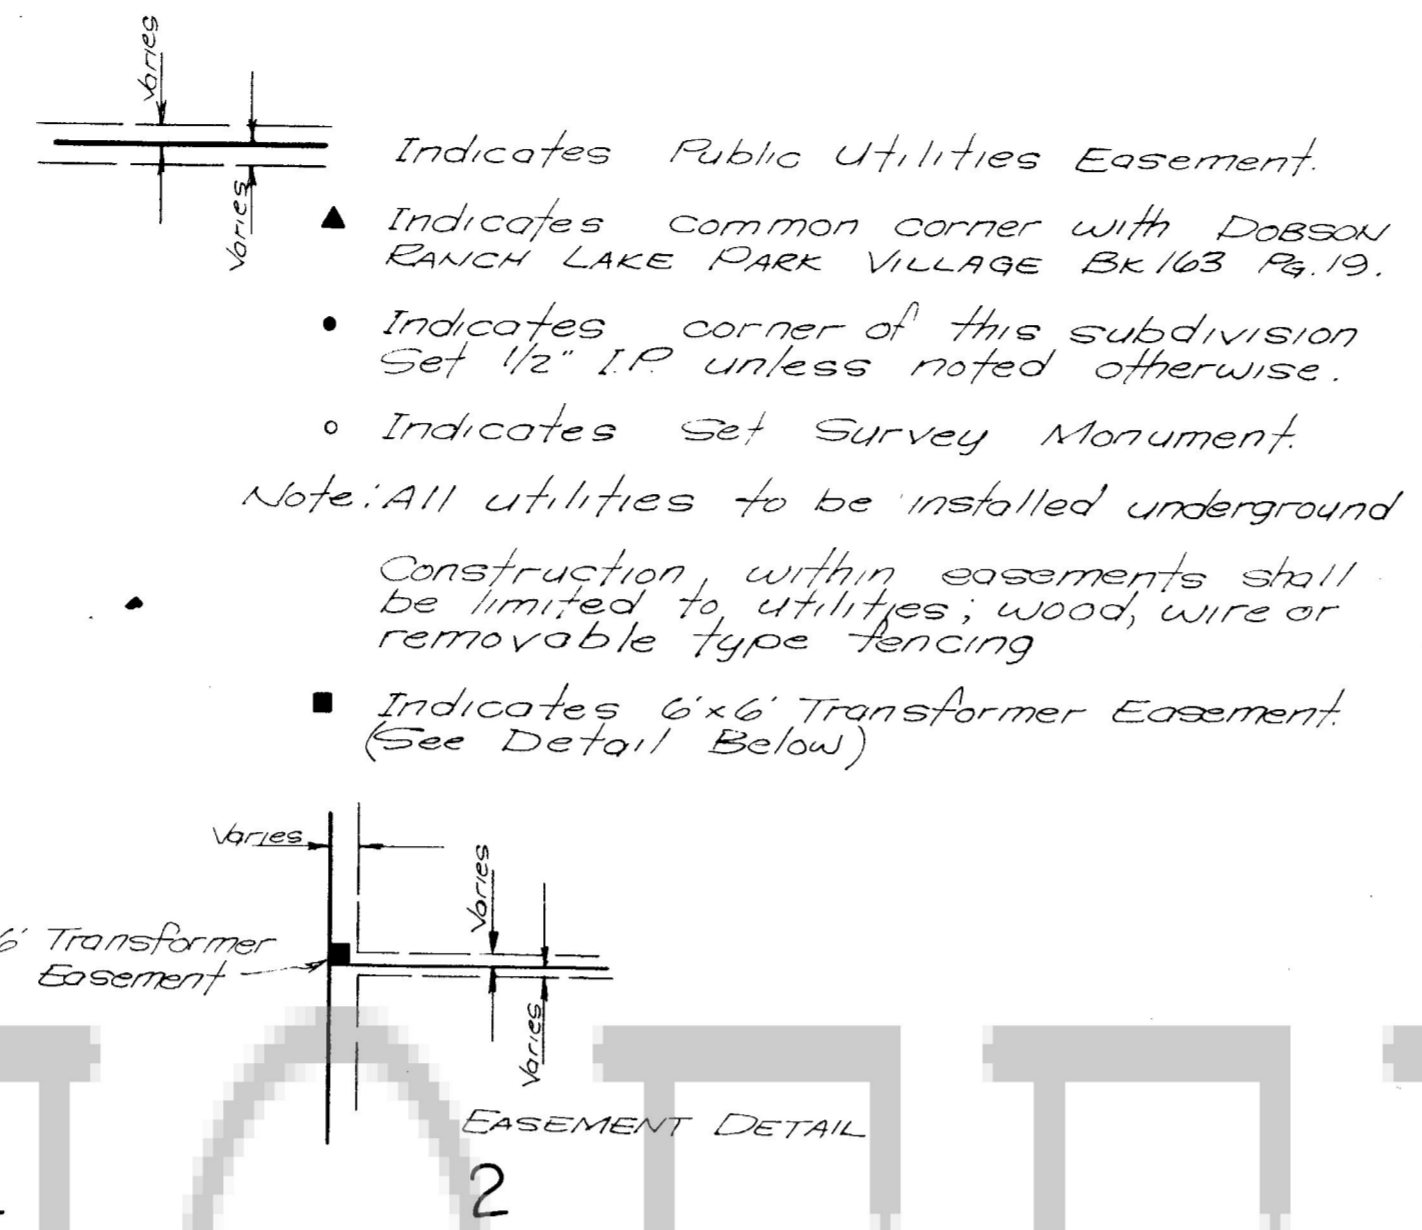 Varies
Varies
Indicates Public Utilities Easement.
Indicates common corner with DOBSON
RANCH LAKE PARK VILLAGE BK 163 PG. 19.
Indicates corner of this subdivision
Set 1/2" I.P. unless noted otherwise.
Indicates Set Survey Monument.
Note: All utilities to be installed underground
Construction, within easements shall
be limited to utilities; wood, wire or
removable type fencing
Indicates 6'x6' Transformer Easement.
(See Detail Below)
Varies
Varies
6' Transformer
Easement
Varies
EASEMENT DETAIL
2